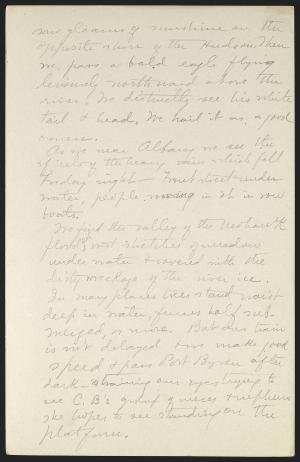 saw gleams of sunshine on the
opposite shore of the Hudson. Then
we pass a bald eagle flying
leisurely northward above the
river. We distinctly see his white
tail & head. We hail it as a good
omen.
As we near Albany we see the
effects of the heavy rain which fell
Friday night – Front street under
water, people moving in it in row
boats.
We find the valley of the Mohawk
flooded, vast stretches of meadow
under water & covered with the
dirty wreckage of the river ice.
In many places trees stand waist
deep in water, fences half sub-
merged, or more. But our train
is not delayed & we make good
speed & pass Port Byron after
dark straining our eyes trying to
see C. B's group of nieces & nephews
she hopes to see standing on the
platform.